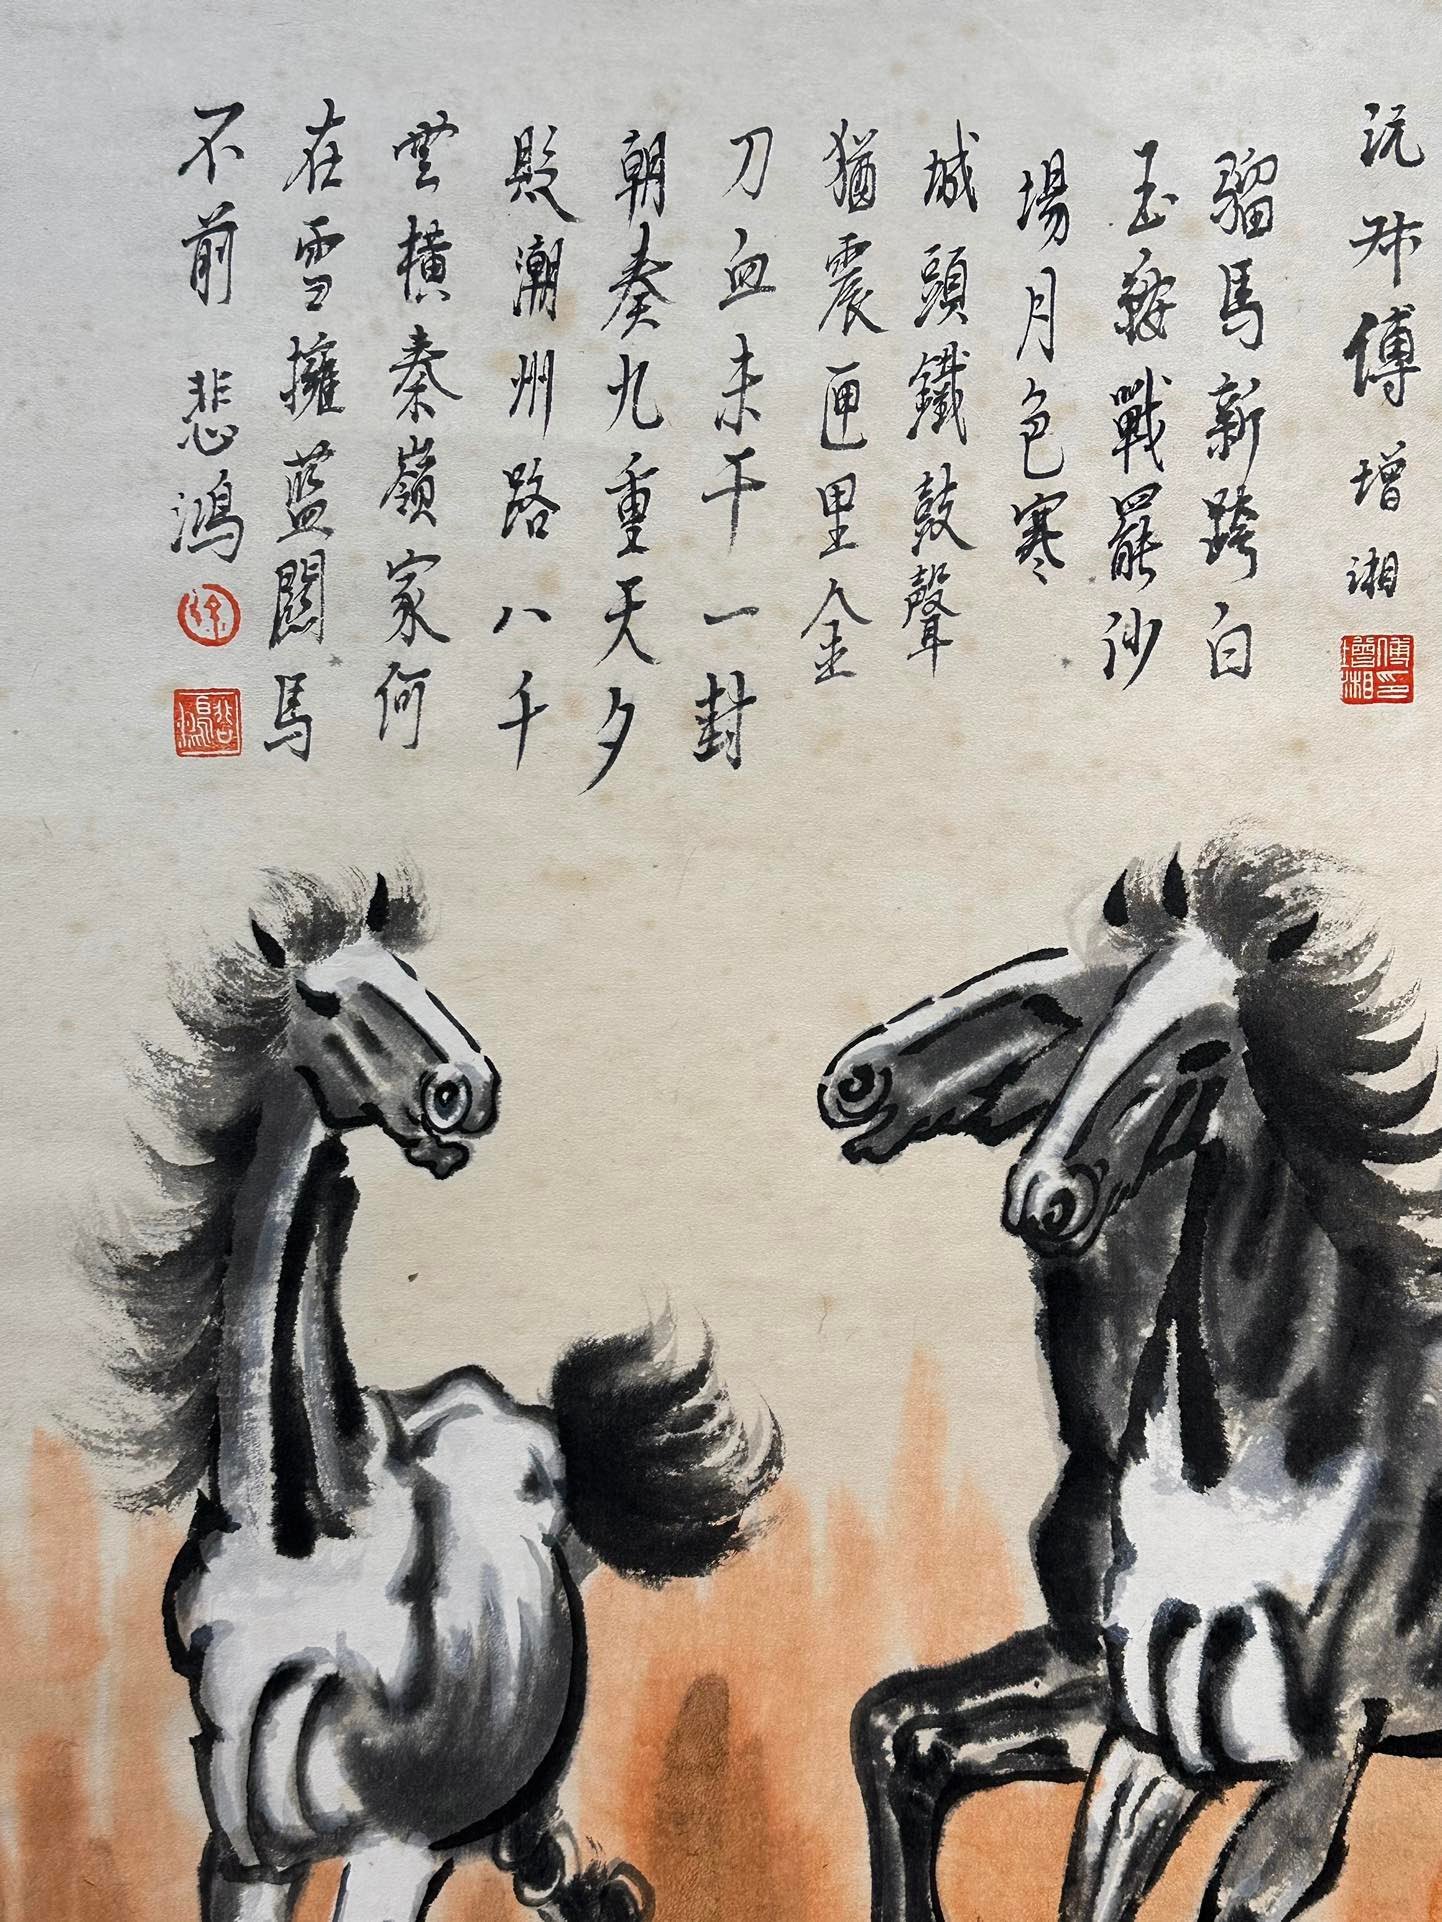 沅叔傅增湘
傅增湘印
騮馬新跨白
玉鞍戰罷沙
場月色寒
城頭鐵鼓聲
猶震匣里金
刀血未干一封
朝奏九重天夕
貶潮州路八千
雲橫秦嶺家何
在雪擁藍關馬
不前 悲鴻
徐
悲鴻